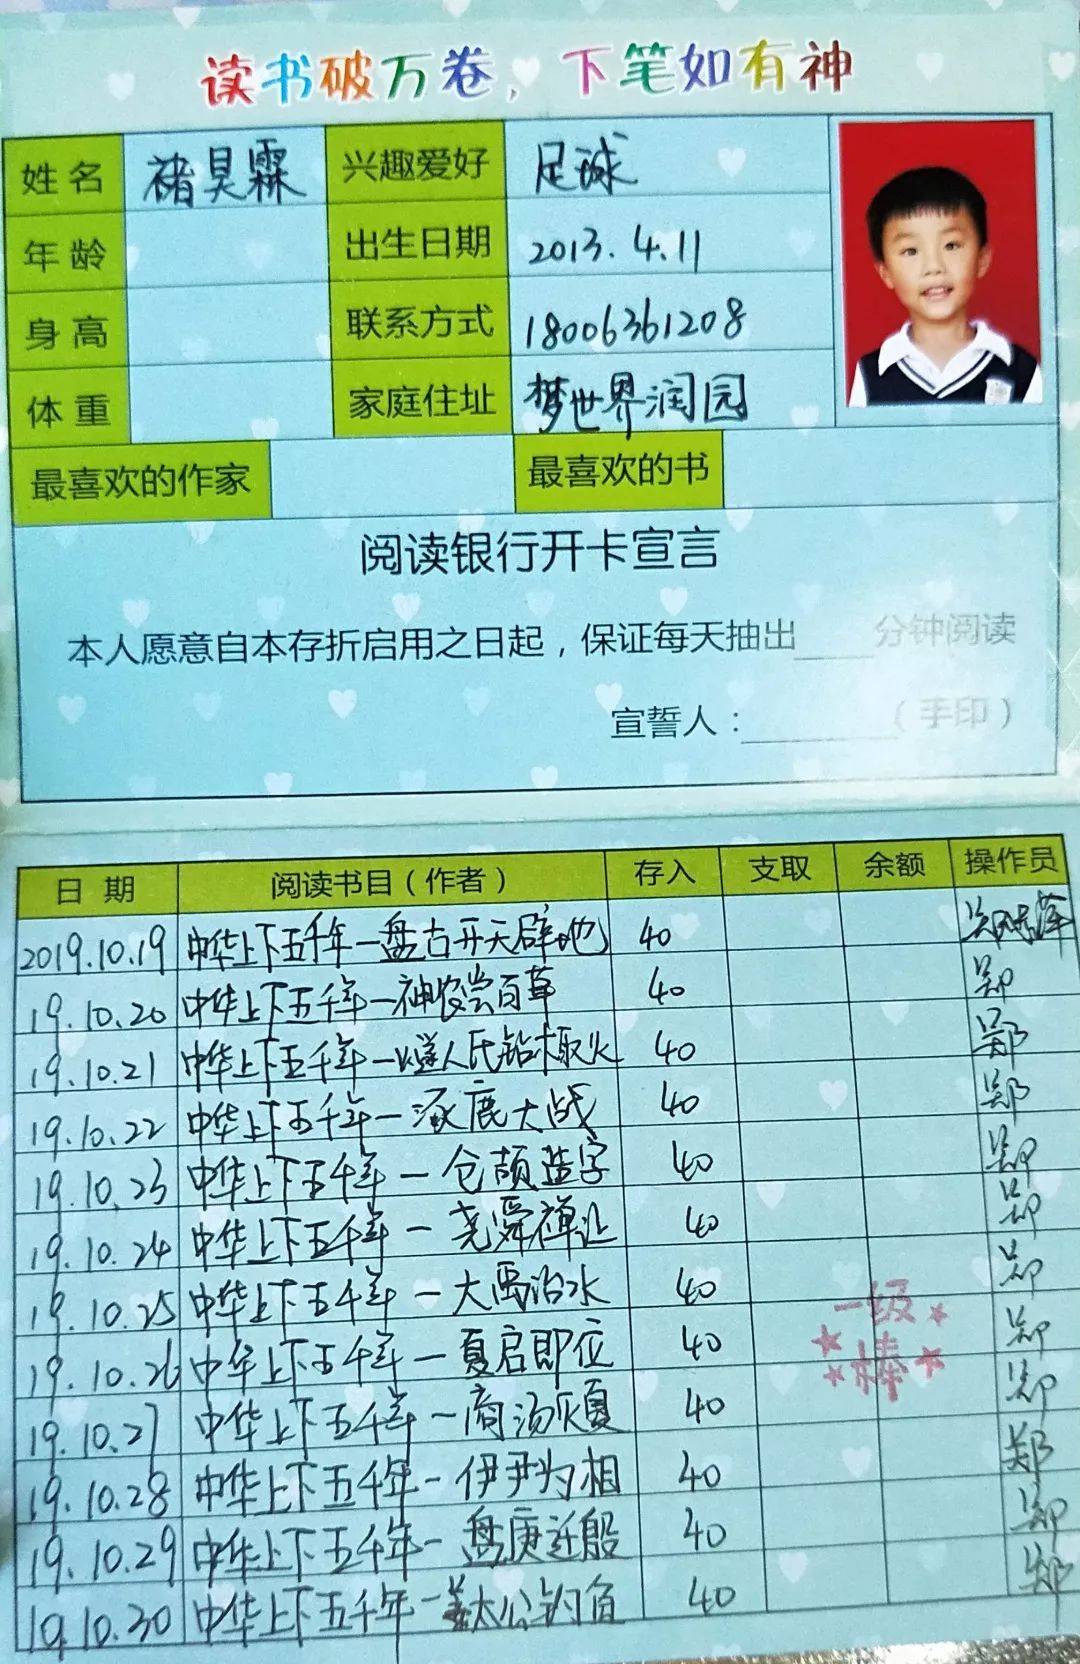 读书破万卷，下笔如有神
姓名 褚昊霖 兴趣爱好 足球
年龄 出生日期 2013.4.11
身高 联系方式 18006361208
体重 家庭住址 梦世界润园
最喜欢的作家 最喜欢的书
阅读银行开卡宣言
本人愿意自本存折启用之日起，保证每天抽出____分钟阅读
宣誓人：________（手印）
日期 阅读书目（作者） 存入 支取 余额 操作员
2019.10.19 中华上下五千年一盘古开天辟地 40 郑
19.10.20 中华上下五千年一神农尝百草 40 郑
19.10.21 中华上下五千年一燧人氏钻木取火 40 郑
19.10.22 中华上下五千年一涿鹿大战 40 郑
19.10.23 中华上下五千年一仓颉造字 40 郑
19.10.24 中华上下五千年一尧舜禅让 40 郑
19.10.25 中华上下五千年一大禹治水 40 郑
19.10.26 中华上下五千年一夏启即位 40 郑
19.10.27 中华上下五千年一商汤灭夏 40 郑
19.10.28 中华上下五千年一伊尹为相 40 郑
19.10.29 中华上下五千年一盘庚迁殷 40 郑
19.10.30 中华上下五千年一姜太公钓鱼 40 郑
一级
棒